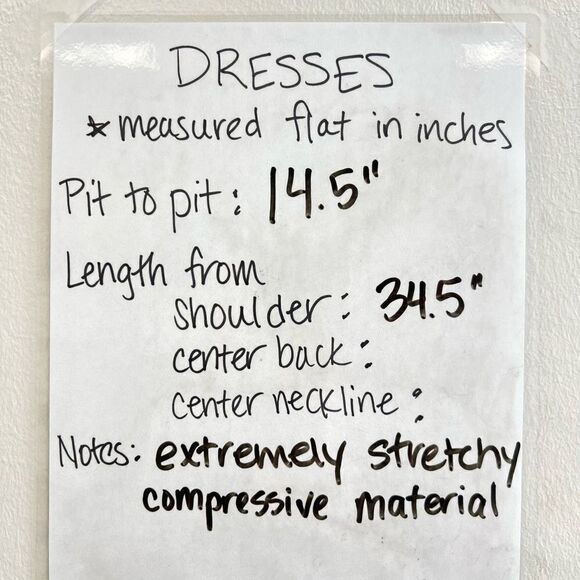 DRESSES
* measured flat in inches
Pit to pit: 14.5"
Length from
shoulder: 34.5"
center back:
center neckline:
Notes: extremely stretchy
compressive material